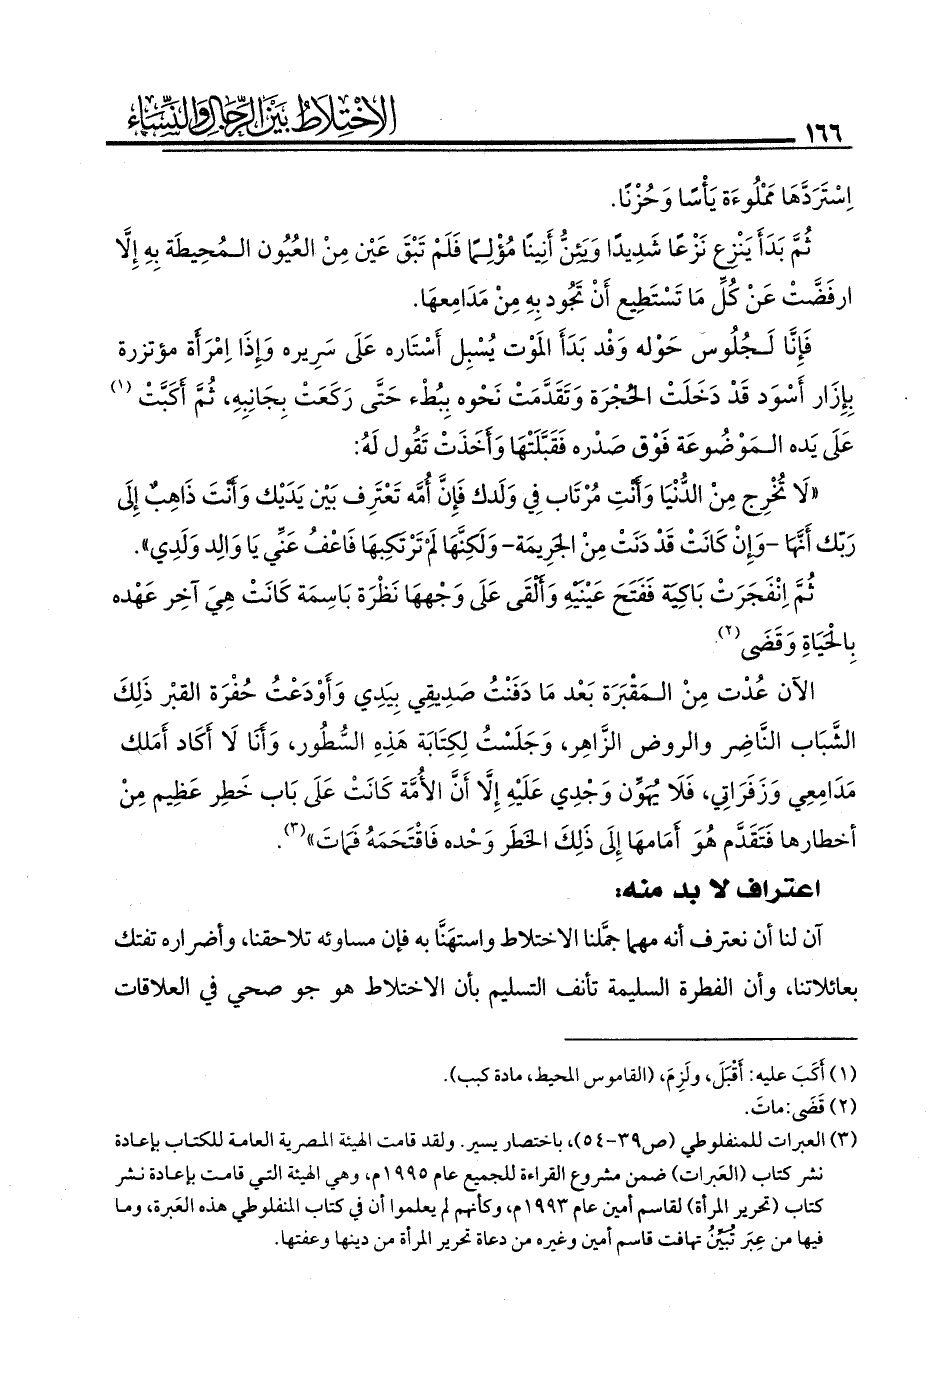 ١٦٦ الاِخْتِلَاطُ بَيْنَ الرِّجَالِ وَالنِّسَاءِ
اِسْتَرَدَّهَا مَمْلُوءَة يَأْسًا وَحُزْنًا.
ثُمَّ بَدَأَ يَنْزِع نَزْعًا شَدِيدًا وَيَئِنُّ أَنِينًا مُؤْلِمًا فَلَمْ تَبْقَ عَيْن مِنْ العُيُون المُحِيطَة بِهِ إِلَّا
ارفَضَّتْ عَنْ كُلِّ مَا تَسْتَطِيع أَنْ تَجُود بِهِ مِنْ مَدَامِعهَا.
فَإِنَّا لَجُلُوس حَوْله وَقَد بَدَأَ المَوْت يُسْبِل أَسْتَاره عَلَى سَرِيره وَإِذَا اِمْرَأَة مؤتزرة
بِإِزَار أَسْوَد قَدْ دَخَلَتْ الحُجْرَة وَتَقَدَّمَتْ نَحْوه بِبُطْء حَتَّى رَكَعَتْ بِجَانِبِهِ، ثُمَّ أَكَبَّتْ (١)
عَلَى يَده المَوْضُوعَة فَوْق صَدْره فَقَبَّلَتْهَا وَأَخَذَتْ تَقُول لَهُ:
«لَا تُخْرِج مِنْ الدُّنْيَا وَأَنْتِ مُرْتَاب فِي وَلَدك فَإِنَّ أُمّه تَعْتَرِف بَيْن يَدَيْك وَأَنْتَ ذَاهِبٌ إِلَى
رَبّك أَنَّهَا -وَإِنْ كَانَتْ قَدْ دَنَتْ مِنْ الجَرِيمَة- وَلَكِنَّهَا لَمْ تَرْتَكِبهَا فَاعْفُ عَنِّي يَا وَالِد وَلَدِي».
ثُمَّ اِنْفَجَرَتْ بَاكِيَة فَفَتَحَ عَيْنَيْهِ وَأَلْقَى عَلَى وَجْههَا نَظْرَة بَاسِمَة كَانَتْ هِيَ آخِر عَهْده
بِالْحَيَاةِ وَقَضَى (٢).
الآن عُدْت مِنْ المَقْبَرَة بَعْد مَا دَفَنْتُ صَدِيقِي بِيَدِي وَأَوْدَعْتُ حُفْرَة القَبْر ذَلِكَ
الشَّبَاب النَّاضِر والروض الزَّاهِر، وَجَلَسْتُ لِكِتَابَة هَذِهِ السُّطُور، وَأَنَا لَا أَكَاد أَملك
مَدَامِعِي وَزَفَرَاتِي، فَلَا يُهَوِّن وَجْدِي عَلَيْهِ إِلَّا أَنَّ الأُمَّة كَانَتْ عَلَى بَاب خَطِر عَظِيم مِنْ
أخطارها فَتَقَدَّم هُوَ أَمَامهَا إِلَى ذَلِكَ الخَطَر وَحْده فَاقْتَحَمَهُ فَمَاتَ»(٣).
اعتراف لا بد منه:
آن لنا أن نعترف أنه مهما جمَّلنا الاختلاط واستهَنَّا به فإن مساوئه تلاحقنا، وأضراره تفتك
بعائلاتنا، وأن الفطرة السليمة تأنف التسليم بأن الاختلاط هو جو صحي في العلاقات
(١) أَكَبَ عليه: أَقْبَلَ، ولَزِمَ، (القاموس المحيط، مادة كبب).
(٢) قَضَى: ماتَ.
(٣) العبرات للمنفلوطي (ص٣٩-٥٤)، باختصار يسير. ولقد قامت الهيئة المصرية العامة للكتاب بإعادة
نشر كتاب (العَبرات) ضمن مشروع القراءة للجميع عام ١٩٩٥م، وهي الهيئة التي قامت بإعادة نشر
كتاب (تحرير المرأة) لقاسم أمين عام ١٩٩٣م، وكأنهم لم يعلموا أن في كتاب المنفلوطي هذه العَبرة، وما
فيها من عِبَر تُبَيِّنُ تهافت قاسم أمين وغيره من دعاة تحرير المرأة من دينها وعفتها.